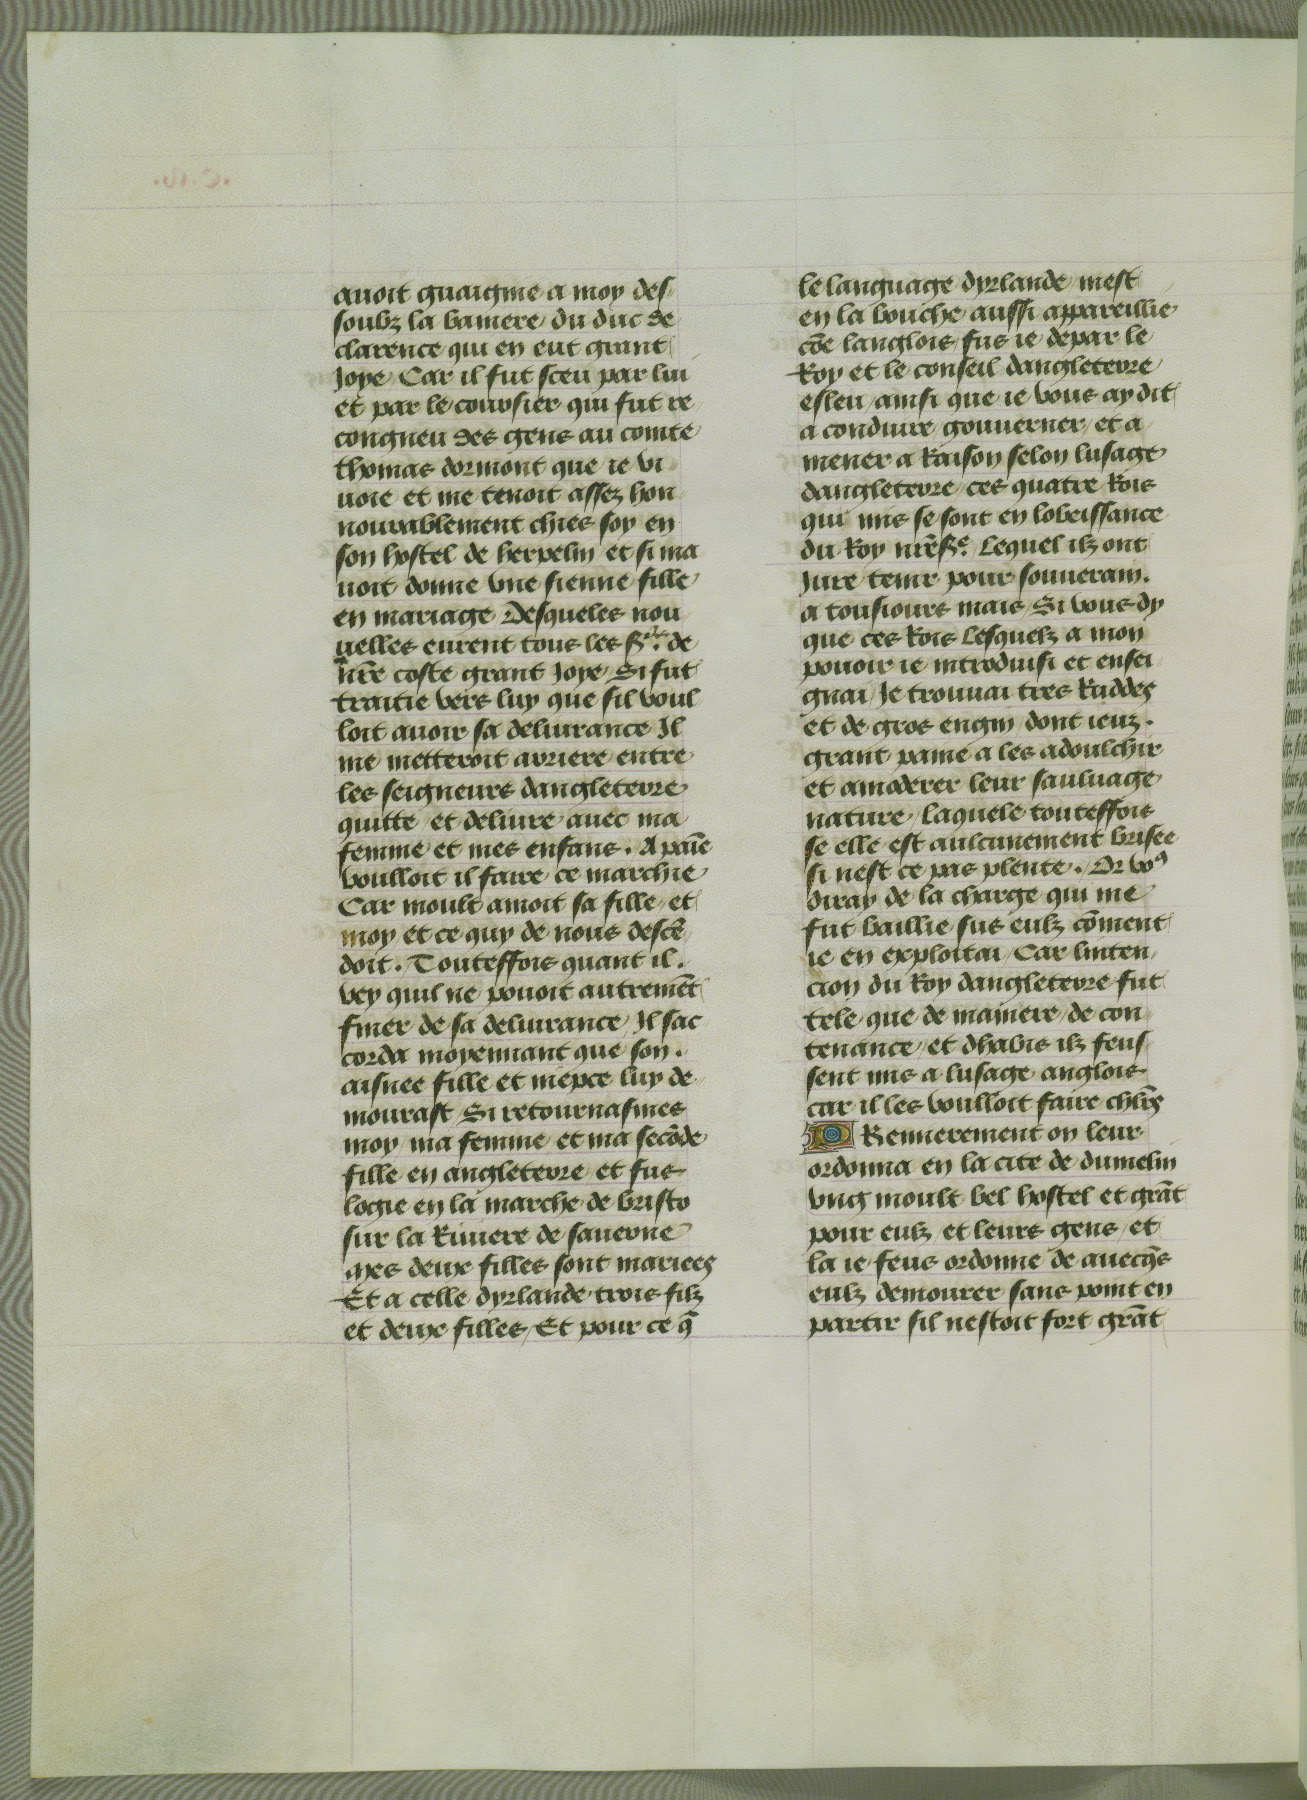 auoit guaignie a moy des
soubz la baniere du duc de
clarence qui en eut grant
Joye Car il fut sceu par lui
et par le coursier qui fut re
congneu des gens au comte
thomas dormont que ie vi
uoie et me tenoit assez hon
nourablement chies soy en
son hostel de herpelin et si ma
uoit donne vne sienne fille
en mariage Desqueles nou
uelles eurent tous les sgrs. de
nre coste grant Joye Si fut
traitie vers luy que sil voul
loit auoir sa deliurance Il
me metteroit arriere entre
les seigneurs dangleterre
quitte et deliure auec ma
femme et mes enfans. A paīe
voulloit il faire ce marchie
Car moult amoit sa fille et
moy et ce quy de nous descē
doit. Touteffois quant il.
vey quil ne pouoit autremēt
finer de sa deliurance Il sac
corda moyennant que son.
aisnee fille et niepce luy de
mourast Si retournasmes
moy ma femme et ma secōde
fille en angleterre et fus
logie en la marche de bristo
sur la Riuiere de sauerne
Mes deux filles sont mariees
Et a celle dyrlande trois filz
et deux filles Et pour ce q̄
le languaige dyrlande mest
en la bouche aussi appareillie
cōe langlois fus ie depar le
Roy et le conseil dangleterre
esleu ainsi que ie vous ay dit
a conduire gouuerner et a
mener a Raison selon lusage
dangleterre ces quatre Rois
qui mis se sont en lobeissance
du Roy nrē sr. Lequel ilz ont
Jure tenir pour souuerain.
a tousiours mais Si vous dy
que ces Rois lesquelz a mon
pouoir ie introduisi et ensei
gnai Je trouuai tres Ruddes
et de gros engin dont ieuz.
grant paine a les adoulchir
et amoderer leur sauluage
nature laquele touteffois
se elle est aulcunement brisee
si nest ce pas plente. Or vo9
diray de la charge qui me
fut baillie sus eulz cōment
ie en exploitai Car linten
cion du Roy dangleterre fut
tele que de maniere de con
tenance et dhabis ilz feus
sent mis a lusage anglois
car il les voulloit faire chlrs̄
PRemierement on leur
ordonna en la cite de duuelin
vng moult bel hostel et grāt
pour eulz et leurs gens et
la ie feus ordonne de auecq̄s
eulz demourer sans point en
partir sil nestoit fort grāt